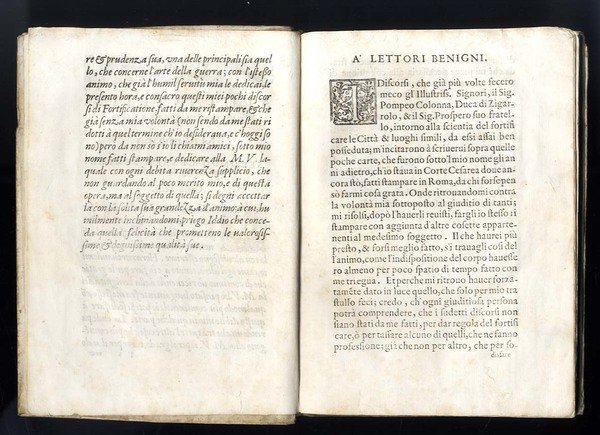 re & prudenza sua, vna delle principali sia quel
lo, che concerne l'arte della guerra; con l'istesso
animo, che già l'humil seruitù mia le dedicai, le
presento hora, e consacro questi miei pochi discor
si di Fortificatione fatti da me ristampare, & che
già senza mia volontà (non sendo da me stati ri
dotti à quel termine ch'io desideraua, e c'hoggi so
no) però da non sò s'io li chiami amici, sotto mio
nome fatti stampare, e dedicare alla M. V. la
quale con ogni debita riuerenza supplicio, che
non guardando al poco merito mio, e di questa
opera, ma al soggetto di quella; si degni accettar
la con la solita sua grandezza d'animo; à cui hu
milmente inchinandomi, priego Iddio che conce
da quella felicità che promettono le valorosis-
sime & dognissime qualità sue.
A' LETTORI BENIGNI.
I Discorsi, che già più volte fecero
meco gl'Illustriss. Signori, il Sig.
Pompeo Colonna, Duca di Zigar-
rolo, & il Sig. Prospero suo fratel-
lo, intorno alla scientia del fortifi
care le Città & luoghi simili, da essi assai ben
posseduta; m'incitarono à scriuerui sopra quelle
poche carte, che furono sotto'l mio nome gli an
ni adietro, ch'io staua in Corte Cesarea doue an
cora stò, fatti stampare in Roma, da chi forse pen
sò farmi cosa grata. Onde ritrouandomi contra
la volontà mia sottoposto al giuditio di tanti;
mi risolsi, dopò l'hauerli reuisti, fargli io stesso ri
stampare con aggiunta d'altre cosette apparte-
nenti al medesimo soggetto. Il che haurei più
presto, & forsi meglio fatto, s'i trauagli così del
l'animo, come l'indispositione del corpo hauesse
ro almeno per poco spatio di tempo fatto con
me triegua. Et perche mi ritrouo hauer forza-
tamẽte dato in luce quello, che solo per mio tra
stullo feci; credo, ch'ogni giuditiosa persona
potrà comprendere, che i sudetti discorsi non
siano stati da me fatti, per dar regola del fortifi
care, ò per tassare alcuno di quelli, che ne fanno
professione; già che non per altro, che per so-
disfare